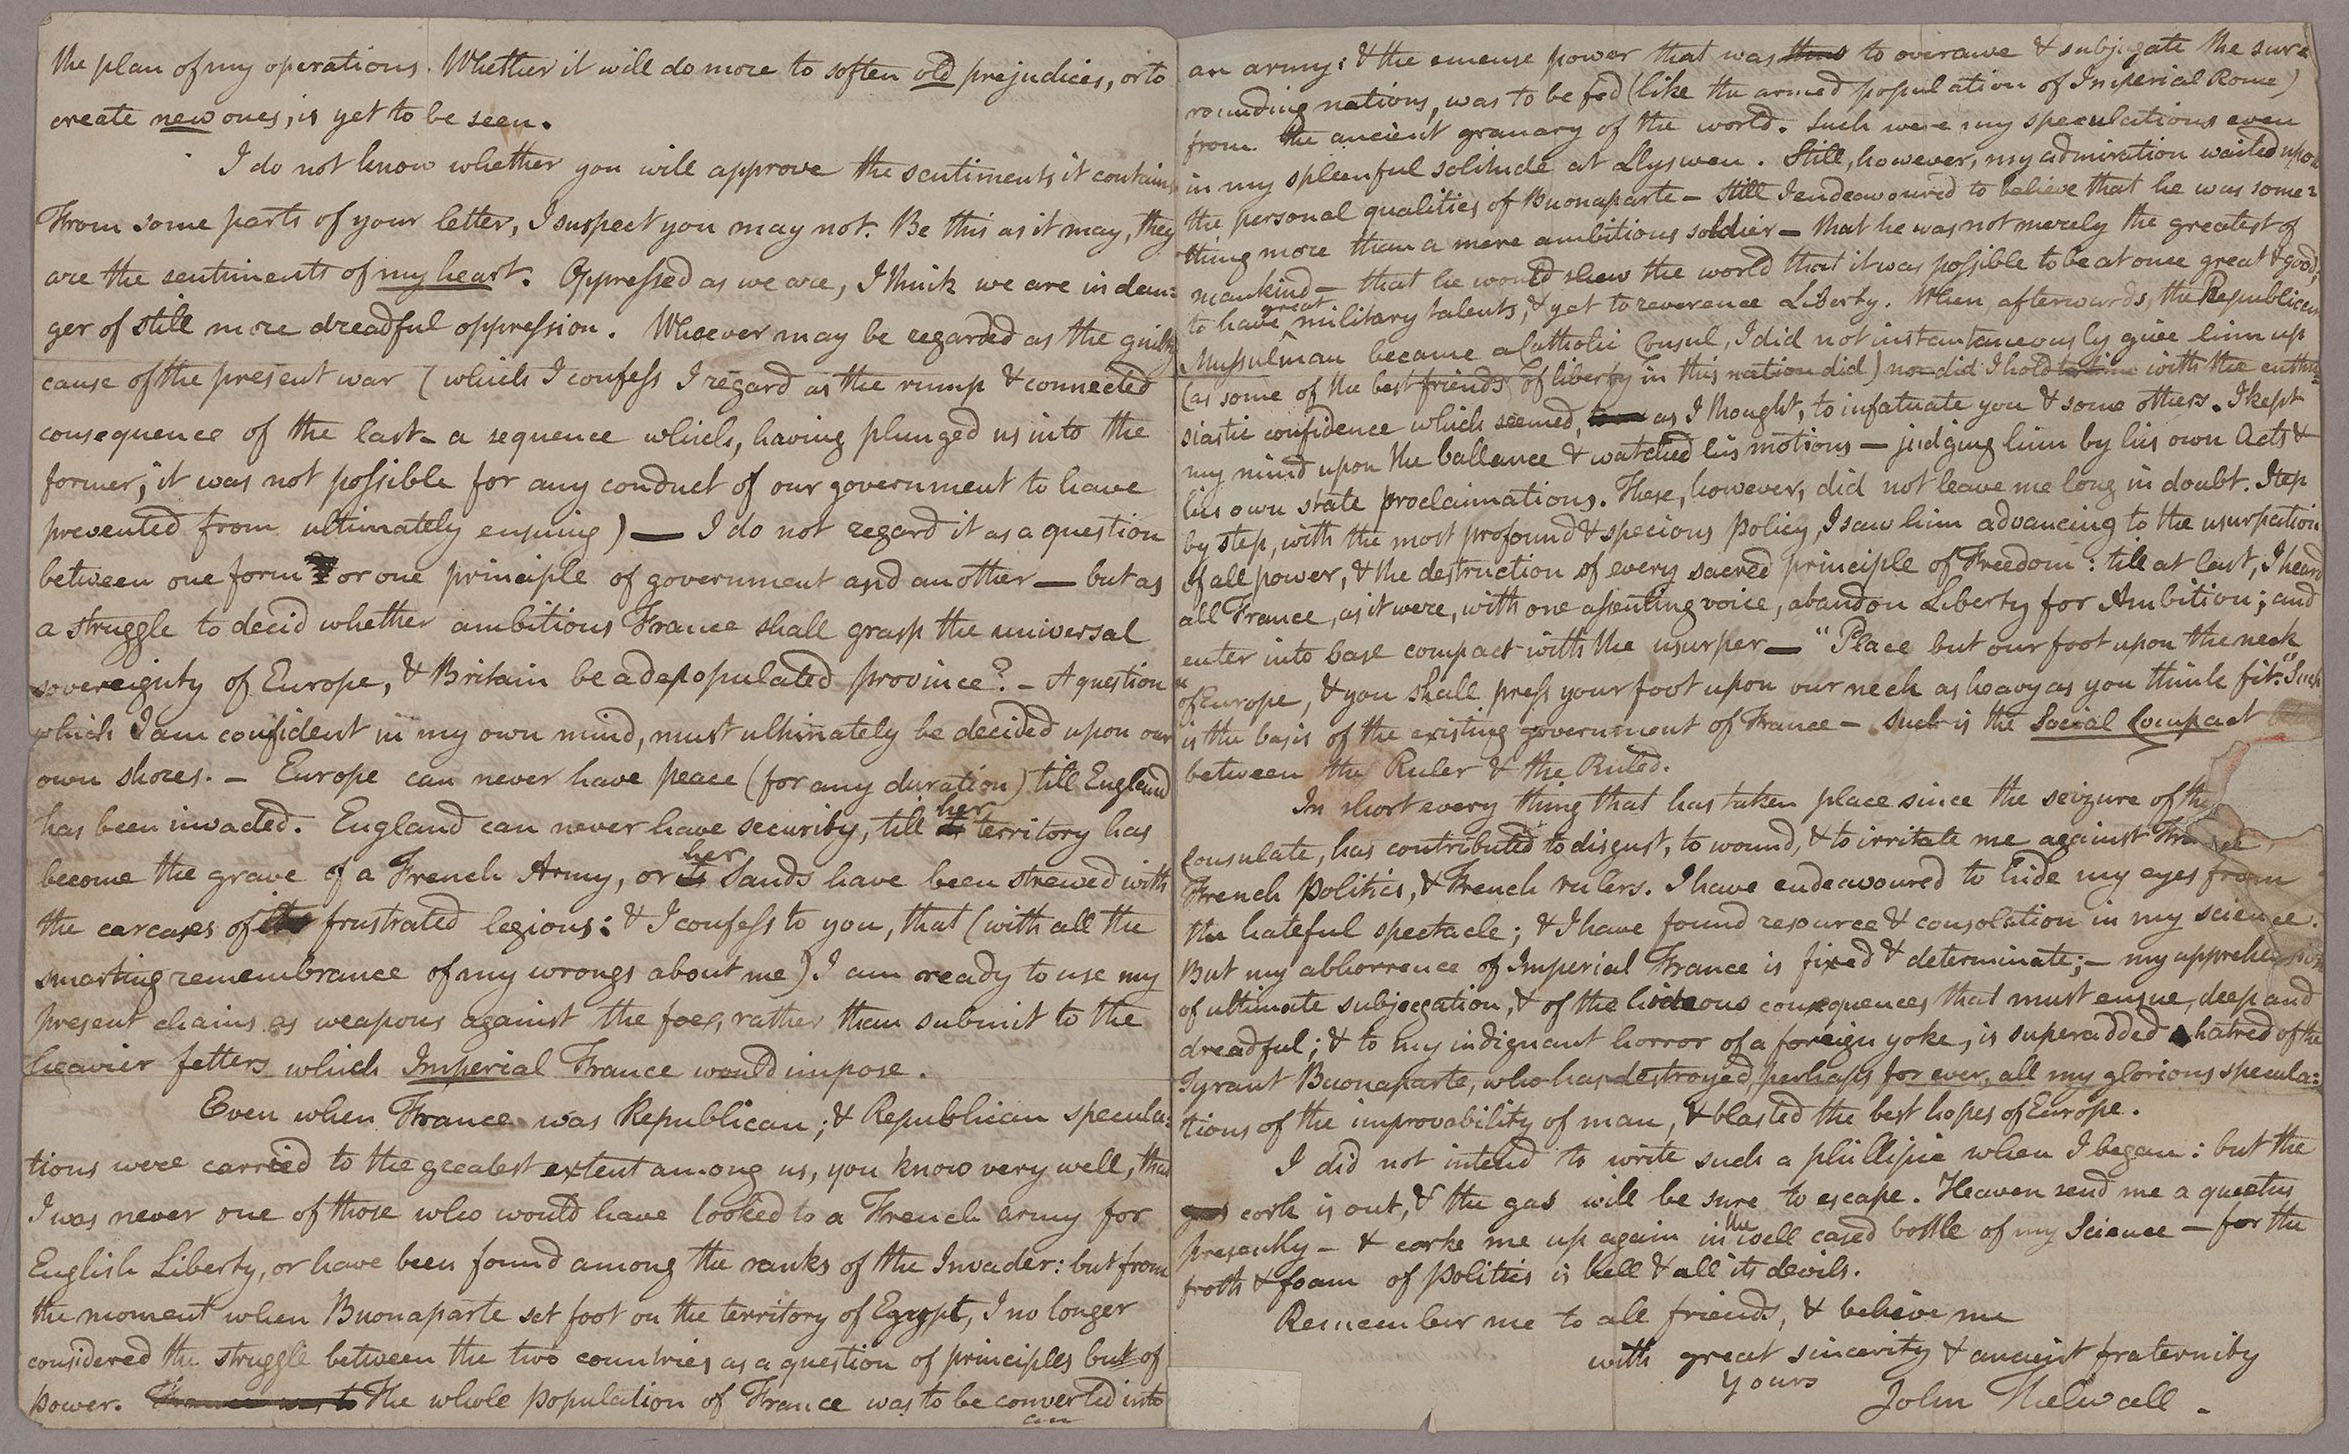 the plan of my operations. Whether it will do more to soften old prejudices, or to
create new ones, is yet to be seen.
I do not know whether you will approve the sentiments it contains
From some parts of your letter, I suspect you may not. Be this as it may, they
are the sentiments of my heart. Oppressed as we are, I think we are in dan=
ger of still more dreadful oppression. Whoever may be regarded as the guilty
cause of the present war (which I confess I regard as the rump & connected
consequence of the last - a sequence which, having plunged us into the
former, it was not possible for any conduct of our government to have
prevented from ultimately ensuing) — I do not regard it as a question
between one form or one principle of government and another — but as
a struggle to decid whether ambitious France shall grasp the universal
sovereignty of Europe, & Britain be a depopulated province? - A question
which I am confident in my own mind, must ultimately be decided upon our
own shores. - Europe can never have peace (for any duration) till England
has been invaded. England can never have security, till her territory has
become the grave of a French Army, or her Sands have been strewed with
the carcases of frustrated legions: & I confess to you, that (with all the
smarting remembrance of my wrongs about me) I am ready to use my
present chains as weapons against the foe, rather than submit to the
heavier fetters which Imperial France would impose.
Even when France was Republican; & Republican specula=
tions were carried to the greatest extent among us, you know very well, that
I was never one of those who would have looked to a French army for
English Liberty, or have been found among the ranks of the Invader: but from
the moment when Buonaparte set foot on the territory of Egypt, I no longer
considered the struggle between the two countries as a question of principles but of
power. France was to The whole population of France was to be converted into
an
an army: & the emense power that was thus to overawe & subjugate the sur=
rounding nations, was to be fed (like the armed population of Imperial Rome)
from the ancient granary of the world. Such were my speculations even
in my spleenful solitude at Llyswen. Still, however, my admiration waited upon
the personal qualities of Buonaparte - Still I endeavoured to believe that he was some=
thing more than a mere ambitious soldier - that he was not merely the greatest of
mankind - that he would shew the world that it was possible to be at once great & good;
to have great military talents, & yet to reverence Liberty. When afterwards, the Republican
Mussulman became a Catholic Consul, I did not instantaneously give him up
(as some of the best friends of liberty in this nation did) nor did I hold to him with the enthu=
siastic confidence which seemed, as I thought, to infatuate you & some others. I kept
my mind upon the ballance & watched his motions — judging him by his own Acts &
his own state proclaimations. These, however, did not leave me long in doubt. Step
by step, with the most profound & specious policy, I saw him advancing to the usurpation
of all power, & the destruction of every sacred principle of Freedom: till at last, I heard
all France, as it were, with one assenting voice, abandon Liberty for Ambition; and
enter into base compact with the usurper — "Place but our foot upon the neck
"of Europe, & you shall press your foot upon our neck as heavy as you think fit." Such
is the basis of the existing government of France - such is the Social Compact
between the Ruler & the Ruled.
In short every thing that has taken place since the seizure of the
Consulate, has contributed to disgust, to wound, & to irritate me against France,
French politics, & French rulers. I have endeavoured to hide my eyes from
the hateful spectacle; & I have found resource & consolation in my science.
But my abhorrence of Imperial France is fixed & determinate; - my apprehension
of ultimate subjecgation, & of the hideous consequences that must ensue, deep and
dreadful; & to my indignant horror of a foreign yoke, is superadded a hatred of the
Tyrant Buonaparte, who has destroyed, perhaps for ever, all my glorious specula=
tions of the improvability of man, & blasted the best hopes of Europe.
I did not intend to write such a phillipic when I began: but the
gas cork is out, & the gas will be sure to escape. Heaven send me a quietus
presently - & corke me up again in the well cased bottle of my Science — for the
froth & foam of politics is hell & all its devils.
Remember me to all friends, & believe me
with great sincerity & ancient fraternity
Yours
John Thelwall.